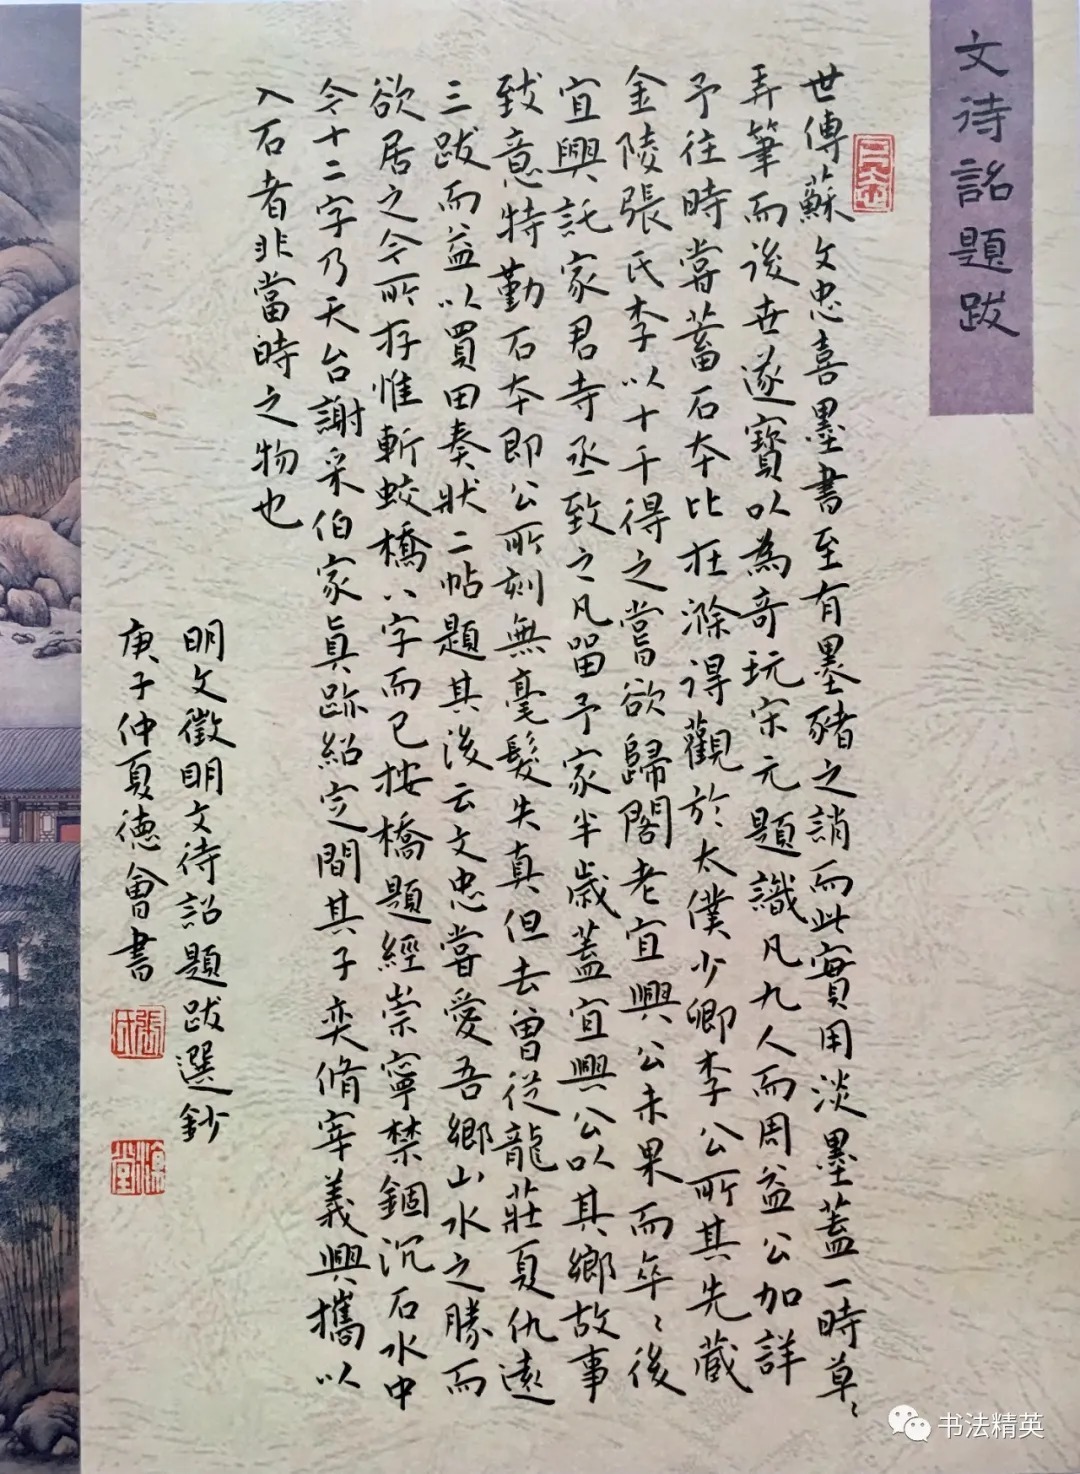 文待詔題跋
世傳蘇文忠喜墨書至有墨豬之誚而此實用淡墨蓋一時草〻
弄筆而後世遂寶以為奇玩宋元題識凡九人而周益公加詳
予往時嘗蓄石本比在滁得觀於太僕少卿李公所其先藏
金陵張氏李以十千得之嘗欲歸閣老宜興公未果而卒〻後
宜興託家君寺丞致之凡留予家半歲蓋宜興公以其鄉故事
致意特勤石本即公所刻無毫髮失真但去曾從龍莊夏仇遠
三跋而益以買田奏狀二帖題其後云文忠嘗愛吾鄉山水之勝而
欲居之今所存惟斬蛟橋八字而已按橋題經崇寧禁錮沉石水中
今十二字乃天台謝采伯家真跡紹定間其子奕脩宰義興攜以
入石者非當時之物也
明文徵明文待詔題跋選鈔
庚子仲夏德會書
張氏
書法精英